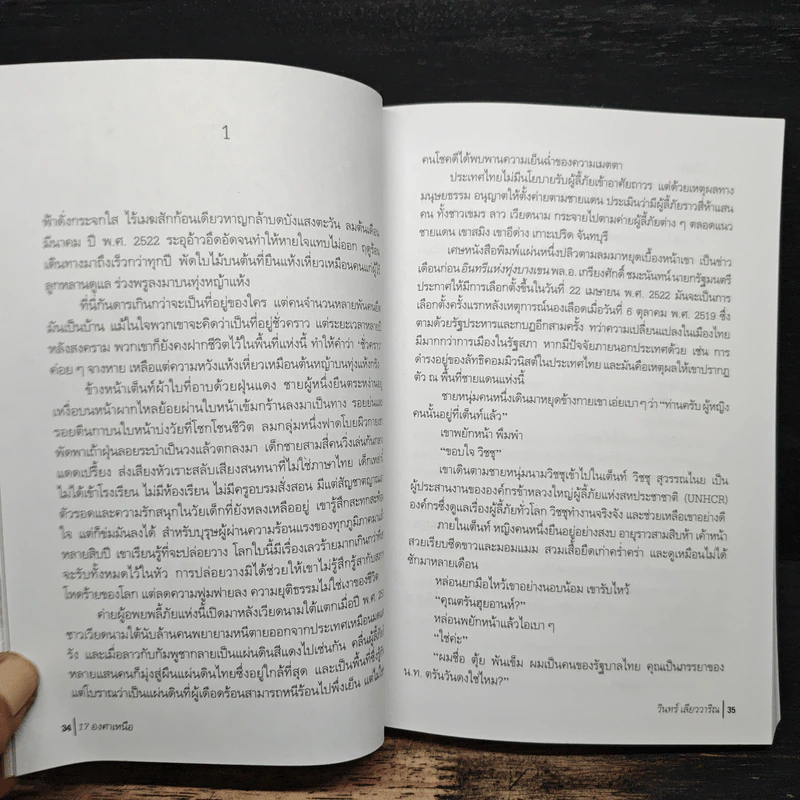 1
ฟ้าดั่งกระจกใส ไร้เมฆสักก้อนเดียวหาญกล้าบดบังแสงตะวัน ลมต้นเดือน
มีนาคม ปี พ.ศ. 2522 ระอุอ้าวอึดอัดจนทำให้หายใจแทบไม่ออก ฤดูร้อน
เดินทางมาถึงเร็วกว่าทุกปี พัดใบไม้บนต้นที่ยืนแห้งเหี่ยวเหมือนคนแก่ผู้ไร้
ลูกหลานดูแล ร่วงพรูลงมาบนทุ่งหญ้าแห้ง
ที่นี่กันดารเกินกว่าจะเป็นที่อยู่ของใคร แต่คนจำนวนหลายพันคน
มันเป็นบ้าน แม้ในใจพวกเขาจะคิดว่าเป็นที่อยู่ชั่วคราว แต่ระยะเวลาหลายปี
หลังสงคราม พวกเขาก็ยังคงฝากชีวิตไว้ในพื้นที่แห่งนี้ ทำให้คำว่า ‘ชั่วคราว’
ค่อย ๆ จางหาย เหลือแต่ความหวังแห้งเหี่ยวเหมือนต้นหญ้าบนทุ่งแห้ง
ข้างหน้าเต็นท์ผ้าใบที่อาบด้วยฝุ่นแดง ชายผู้หนึ่งยืนตระหง่าน
เหงื่อบนหน้าผากไหลย้อยผ่านใบหน้าเข้มกร้านลงมาเป็นทาง รอยย่น
รอยตีนกาบนใบหน้าบ่งวัยที่โชกโชนชีวิต ลมกลุ่มหนึ่งฟาดโบยผิวกาย
พัดพาเถ้าฝุ่นลอยระบำเป็นวงแล้วตกลงมา เด็กชายสามสี่คนวิ่งเล่นกัน
แดดเปรี้ยง ส่งเสียงหัวเราะสลับเสียงสนทนาที่ไม่ใช่ภาษาไทย เด็กเหล่านี้
ไม่ได้เข้าโรงเรียน ไม่มีห้องเรียน ไม่มีครูอบรมสั่งสอน มีแต่สัญชาตญาณ
ตัวรอดและความรักสนุกในวัยเด็กที่ยังหลงเหลืออยู่ เขารู้สึกสะทกสะท้อน
ใจ แต่ก็ข่มมันลงได้ สำหรับบุรุษผู้ผ่านความร้อนแรงของทุกภูมิภาคมา
หลายสิบปี เขาเรียนรู้ที่จะปล่อยวาง โลกใบนี้มีเรื่องเลวร้ายมากเกินกว่า
จะรับทั้งหมดไว้ในหัว การปล่อยวางมิได้ช่วยให้เขาไม่รู้สึกรู้สากับ
โหดร้ายของโลก แต่ลดความฟูมฟายลง ความยุติธรรมไม่ใช่เงาของชีวิต
ค่ายผู้อพยพลี้ภัยแห่งนี้เปิดมาหลังเวียดนามใต้แตกเมื่อปี พ.ศ.
ชาวเวียดนามใต้นับล้านคนพยายามหนีตายออกจากประเทศเหมือน
รัง และเมื่อลาวกับกัมพูชากลายเป็นแผ่นดินสีแดงไปเช่นกัน คลื่นผู้ลี้ภัย
หลายแสนคนก็มุ่งสู่ผืนแผ่นดินไทยซึ่งอยู่ใกล้ที่สุด และเป็นพื้นที่ซึ่งรู้
แต่โบราณว่าเป็นแผ่นดินที่ผู้เดือดร้อนสามารถหนีร้อนไปพึ่งเย็น แต่
34 | 17 องศาเหนือ
คนโชคดีได้พบพานความเย็นฉ่ำของความเมตตา
ประเทศไทยไม่มีนโยบายรับผู้ลี้ภัยเข้าอาศัยถาวร แต่ด้วยเหตุผลทาง
มนุษยธรรม อนุญาตให้ตั้งค่ายตามชายแดน ประเมินว่ามีผู้ลี้ภัยราวสี่ห้าแสน
คน ทั้งชาวเขมร ลาว เวียดนาม กระจายไปตามค่ายผู้ลี้ภัยต่าง ๆ ตลอดแนว
ชายแดน เขาสมิง เขาอีด่าง เกาะเปริด จันทบุรี
เศษหนังสือพิมพ์แผ่นหนึ่งปลิวตามลมมาหยุดเบื้องหน้าเขา เป็นข่าว
เดือนก่อน อินทรีแห่งทุ่งบางเขน พล.อ. เกรียงศักดิ์ ชมะนันทน์ นายกรัฐมนตรี
ประกาศให้มีการเลือกตั้งขึ้นในวันที่ 22 เมษายน พ.ศ. 2522 มันจะเป็นการ
เลือกตั้งครั้งแรกหลังเหตุการณ์นองเลือดเมื่อวันที่ 6 ตุลาคม พ.ศ. 2519 ซึ่ง
ตามด้วยรัฐประหารและกบฏอีกสามครั้ง ทว่าความเปลี่ยนแปลงในเมืองไทย
มีมากกว่าการเมืองในรัฐสภา หากมีปัจจัยภายนอกประเทศด้วย เช่น การ
ดำรงอยู่ของลัทธิคอมมิวนิสต์ในประเทศไทย และมันคือเหตุผลให้เขาปรากฏ
ตัว ณ พื้นที่ชายแดนแห่งนี้
ชายหนุ่มคนหนึ่งเดินมาหยุดข้างกายเขา เอ่ยเบา ๆ ว่า “ท่านครับ ผู้หญิง
คนนั้นอยู่ที่เต็นท์แล้ว”
เขาพยักหน้า พึมพำ
“ขอบใจ วิชชุ”
เขาเดินตามชายหนุ่มนามวิชชุเข้าไปในเต็นท์ วิชชุ สุวรรณไนย เป็น
ผู้ประสานงานขององค์กรข้าหลวงใหญ่ผู้ลี้ภัยแห่งสหประชาชาติ (UNHCR)
องค์กรซึ่งดูแลเรื่องผู้ลี้ภัยทั่วโลก วิชชุทำงานจริงจัง และช่วยเหลือเขาอย่างดี
ภายในเต็นท์ หญิงคนหนึ่งยืนอยู่อย่างสงบ อายุราวสามสิบห้า เค้าหน้า
สวยเรียบซีดขาวและมอมแมม สวมเสื้อยืดเก่าคร่ำคร่า และดูเหมือนไม่ได้
ซักมาหลายเดือน
หล่อนยกมือไหว้เขาอย่างนอบน้อม เขารับไหว้
“คุณตรันฮุยอานห์?”
หล่อนพยักหน้าแล้วไอเบา ๆ
“ใช่ค่ะ”
“ผมชื่อ ตุ้ย พันเข็ม ผมเป็นคนของรัฐบาลไทย คุณเป็นภรรยาของ
น.ท. ตรันวันดงใช่ไหม?”
วินทร์ เลียววาริณ | 35